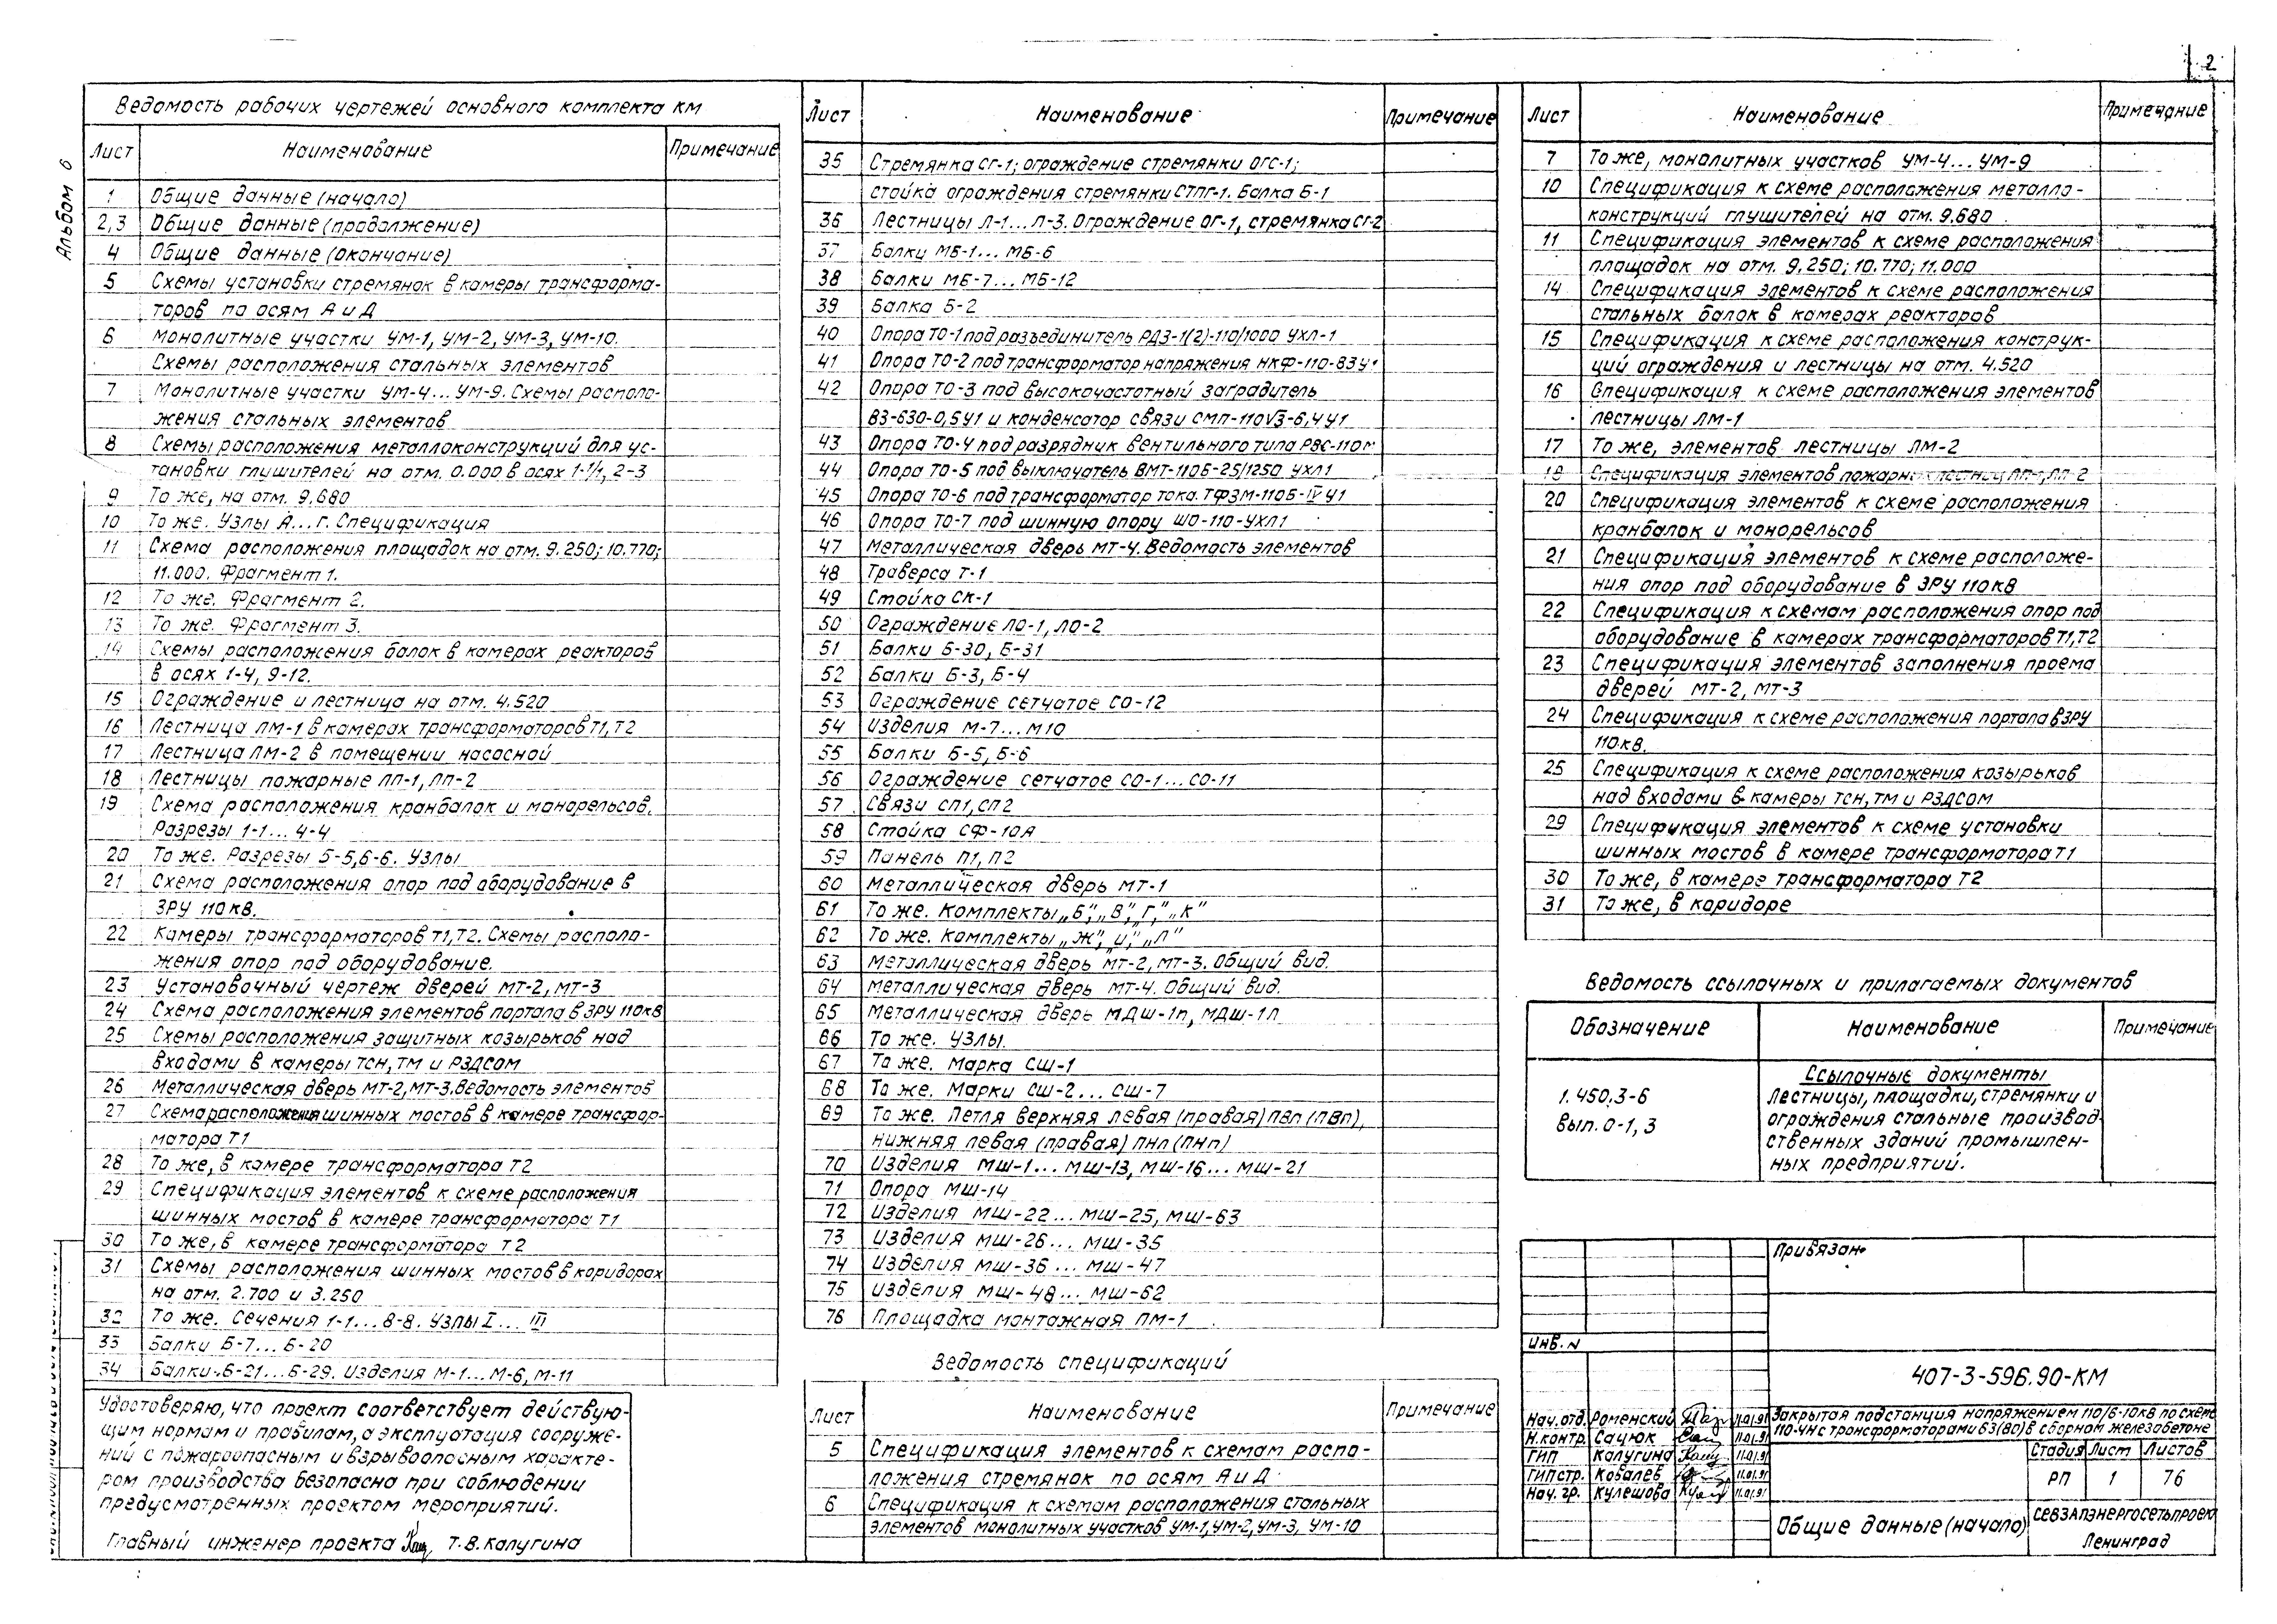 2
Альбом 6
Ведомость рабочих чертежей основного комплекта КМ
Лист Наименование Примечание
1 Общие данные (начало)
2,3 Общие данные (продолжение)
4 Общие данные (окончание)
5 Схемы установки стремянок в камеры трансформа-
торов по осям А и Д
6 Монолитные участки УМ-1, УМ-2, УМ-3, УМ-10.
Схемы расположения стальных элементов
7 Монолитные участки УМ-4... УМ-9. Схемы располо-
жения стальных элементов
8 Схемы расположения металлоконструкций для ус-
тановки глушителей на отм. 0.000 в осях 1-1/1, 2-3
9 То же, на отм. 9.680
10 То же. Узлы А...Г. Спецификация
11 Схема расположения площадок на отм. 9.250; 10.770;
11.000. Фрагмент 1.
12 То же. Фрагмент 2.
13 То же. Фрагмент 3.
14 Схемы расположения балок в камерах реакторов
в осях 1-4, 9-12.
15 Ограждение и лестница на отм. 4.520
16 Лестница ЛМ-1 в камерах трансформаторов Т1, Т2
17 Лестница ЛМ-2 в помещении насосной
18 Лестницы пожарные ЛП-1, ЛП-2
19 Схема расположения кранбалок и монорельсов.
Разрезы 1-1... 4-4
20 То же. Разрезы 5-5, 6-6. Узлы
21 Схема расположения опор под оборудование в
ЗРУ 110 кВ.
22 Камеры трансформаторов Т1, Т2. Схемы располо-
жения опор под оборудование.
23 Установочный чертеж дверей МТ-2, МТ-3
24 Схема расположения элементов портала в ЗРУ 110 кВ
25 Схемы расположения защитных козырьков над
входами в камеры ТСН, ТМ и РЗДСОМ
26 Металлическая дверь МТ-2, МТ-3. Ведомость элементов
27 Схема расположения шинных мостов в камере трансфор-
матора Т1
28 То же, в камере трансформатора Т2
29 Спецификация элементов к схеме расположения
шинных мостов в камере трансформатора Т1
30 То же, в камере трансформатора Т2
31 Схемы расположения шинных мостов в коридорах
на отм. 2.700 и 3.250
32 То же. Сечения 1-1... 8-8. Узлы I... III
33 Балки Б-7... Б-20
34 Балки Б-21... Б-29. Изделия М-1... М-6, М-11
Удостоверяю, что проект соответствует действую-
щим нормам и правилам, а эксплуатация сооруже-
ний с пожароопасным и взрывоопасным характе-
ром производства безопасна при соблюдении
предусмотренных проектом мероприятий.
Главный инженер проекта Т.В. Калугина
Лист Наименование Примечание
35 Стремянка СГ-1; ограждение стремянки ОГС-1;
стойка ограждения стремянки СТПГ-1. Балка Б-1
36 Лестницы Л-1... Л-3. Ограждение ОГ-1, стремянка СГ-2
37 Балки МБ-1... МБ-6
38 Балки МБ-7... МБ-12
39 Балка Б-2
40 Опора ТО-1 под разъединитель РДЗ-1(2)-110/1000 УХЛ-1
41 Опора ТО-2 под трансформатор напряжения НКФ-110-83У1
42 Опора ТО-3 под высокочастотный заградитель
ВЗ-630-0,5У1 и конденсатор связи СМП-110√3-6,4У1
43 Опора ТО-4 под разрядник вентильного типа РВС-110м
44 Опора ТО-5 под выключатель ВМТ-110Б-25/1250 УХЛ1
45 Опора ТО-6 под трансформатор тока. ТФЗМ-110Б-IV У1
46 Опора ТО-7 под шинную опору ШО-110-УХЛ1
47 Металлическая дверь МТ-4. Ведомость элементов
48 Траверса Т-1
49 Стойка СК-1
50 Ограждение ЛО-1, ЛО-2
51 Балки Б-30, Б-31
52 Балки Б-3, Б-4
53 Ограждение сетчатое СО-12
54 Изделия М-7... М10
55 Балки Б-5, Б-6
56 Ограждение сетчатое СО-1... СО-11
57 Связи СП1, СП2
58 Стойка СФ-10А
59 Панель П1, П2
60 Металлическая дверь МТ-1
61 То же. Комплекты „Б", „В", „Г", „К"
62 То же. Комплекты „Ж", „И", „Л"
63 Металлическая дверь МТ-2, МТ-3. Общий вид.
64 Металлическая дверь МТ-4. Общий вид.
65 Металлическая дверь МДШ-1п, МДШ-1л
66 То же. Узлы.
67 То же. Марка СШ-1
68 То же. Марки СШ-2... СШ-7
69 То же. Петля верхняя левая (правая) ПВл (ПВп),
нижняя левая (правая) ПНл (ПНп)
70 Изделия МШ-1... МШ-13, МШ-16... МШ-21
71 Опора МШ-14
72 Изделия МШ-22... МШ-25, МШ-63
73 Изделия МШ-26... МШ-35
74 Изделия МШ-36... МШ-47
75 Изделия МШ-48... МШ-62
76 Площадка монтажная ПМ-1
Ведомость спецификаций
Лист Наименование Примечание
5 Спецификация элементов к схемам распо-
ложения стремянок по осям А и Д
6 Спецификация к схемам расположения стальных
элементов монолитных участков УМ-1, УМ-2, УМ-3, УМ-10
Лист Наименование Примечание
7 То же, монолитных участков УМ-4... УМ-9
10 Спецификация к схеме расположения металло-
конструкций глушителей на отм. 9.680
11 Спецификация элементов к схеме расположения
площадок на отм. 9.250; 10.770; 11.000
14 Спецификация элементов к схеме расположения
стальных балок в камерах реакторов
15 Спецификация к схеме расположения конструк-
ций ограждения и лестницы на отм. 4.520
16 Спецификация к схеме расположения элементов
лестницы ЛМ-1
17 То же, элементов лестницы ЛМ-2
18 Спецификация элементов пожарных лестниц ЛП-1, ЛП-2
20 Спецификация элементов к схеме расположения
кранбалок и монорельсов
21 Спецификация элементов к схеме расположе-
ния опор под оборудование в ЗРУ 110 кВ
22 Спецификация к схемам расположения опор под
оборудование в камерах трансформаторов Т1, Т2
23 Спецификация элементов заполнения проема
дверей МТ-2, МТ-3
24 Спецификация к схеме расположения портала в ЗРУ
110 кВ.
25 Спецификация к схеме расположения козырьков
над входами в камеры ТСН, ТМ и РЗДСОМ
29 Спецификация элементов к схеме установки
шинных мостов в камере трансформатора Т1
30 То же, в камере трансформатора Т2
31 То же, в коридоре
Ведомость ссылочных и прилагаемых документов
Обозначение Наименование Примечание
Ссылочные документы
1.450.3-6 Лестницы, площадки, стремянки и
вып. 0-1, 3 ограждения стальные производ-
ственных зданий промышлен-
ных предприятий.
Привязан
Инв. N
407-3-596.90-КМ
Нач. отд. Роменский 11.01.91
Н. контр. Сацюк 11.01.91
ГИП Калугина 11.01.91
ГИП стр. Ковалев 11.01.91
Нач. гр. Кулешова 11.01.91
Закрытая подстанция напряжением 110/6-10 кВ по схеме
110-4Н с трансформаторами 63(80) в сборном железобетоне
Стадия Лист Листов
РП 1 76
Общие данные (начало)
СЕВЗАПЭНЕРГОСЕТЬПРОЕКТ
Ленинград